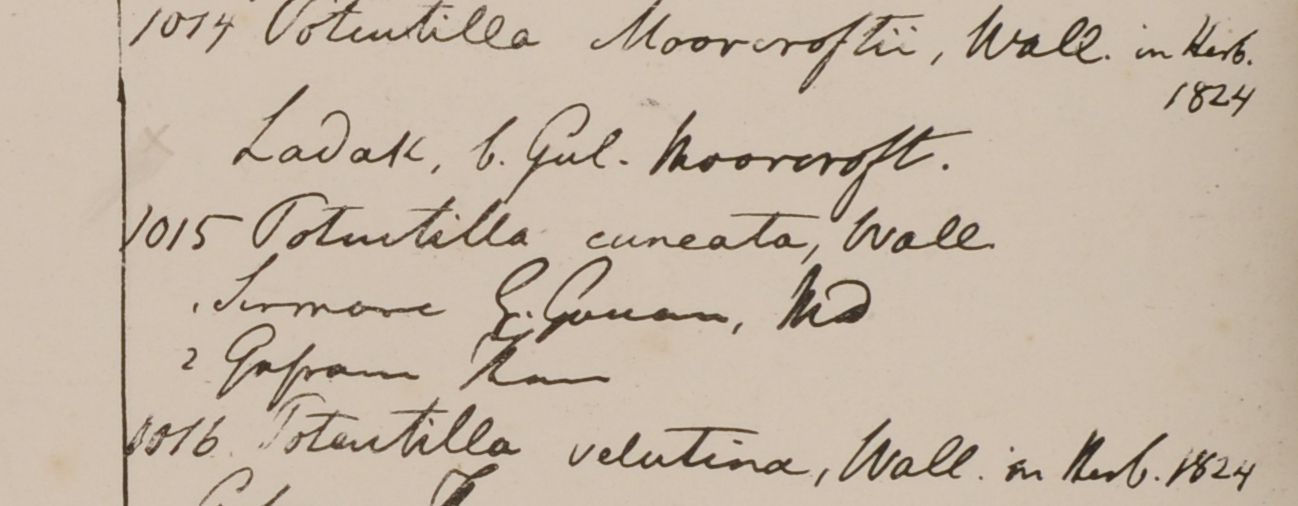 1014 Potentilla Moorcroftii, Wall. in Herb.
1824
Ladak, b. Gul. Moorcroft.
1015 Potentilla cuneata, Wall.
1 Sirmore G. Govan, MD
2 Gosain Than
1016 Potentilla velutina, Wall. in Herb. 1824